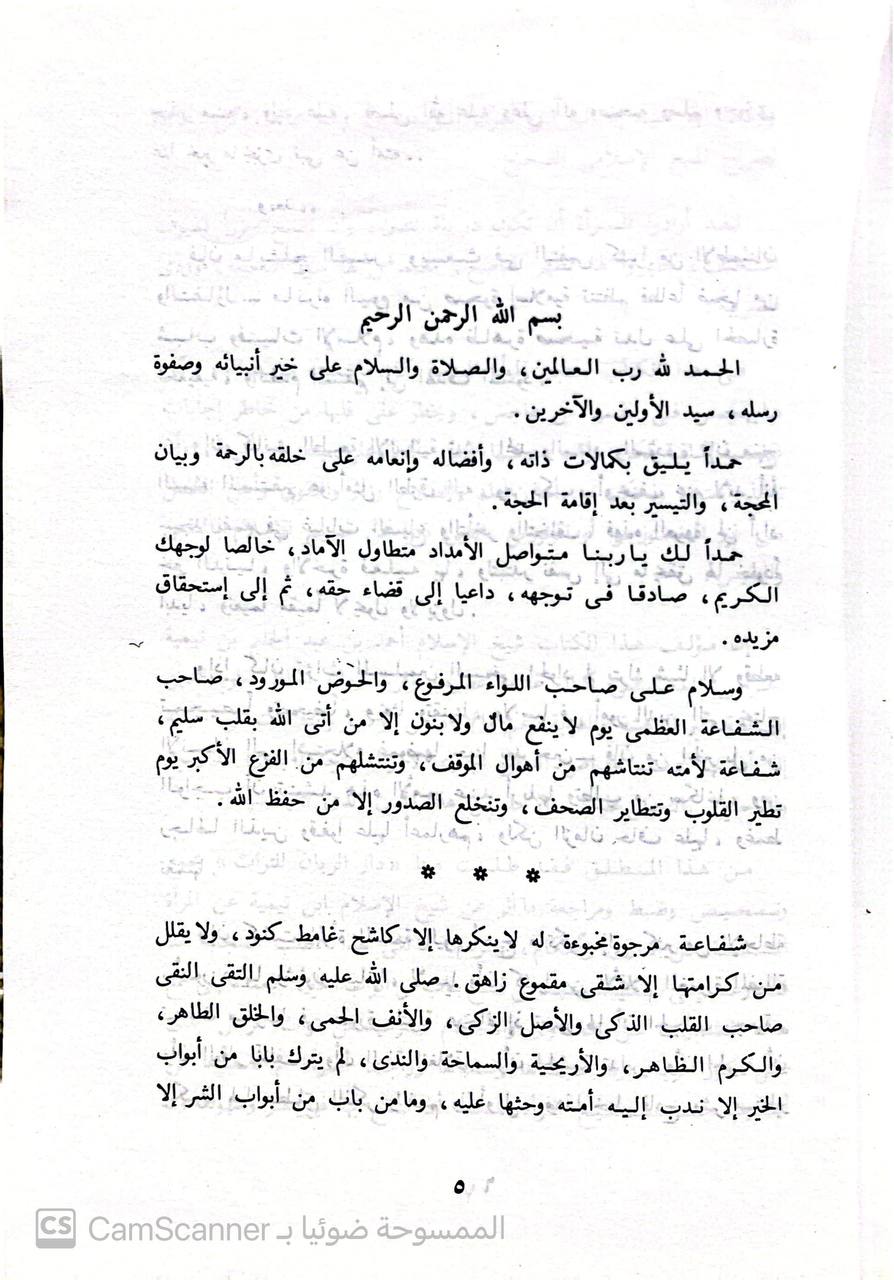 بسم الله الرحمن الرحيم
الحمد لله رب العالمين، والصلاة والسلام على خير أنبيائه وصفوة
رسله، سيد الأولين والآخرين.
حمداً يليق بكمالات ذاته، وأفضاله وإنعامه على خلقه بالرحمة وبيان
المحجة، والتيسير بعد إقامة الحجة.
حمداً لك ياربنا متواصل الأمداد متطاول الآماد، خالصا لوجهك
الكريم، صادقا فى توجهه، داعيا إلى قضاء حقه، ثم إلى إستحقاق
مزيده.
وسلام على صاحب اللواء المرفوع، والحوض المورود، صاحب
الشفاعة العظمى يوم لاينفع مال ولابنون إلا من أتى الله بقلب سليم،
شفاعة لأمته تنتاشهم من أهوال الموقف، وتنتشلهم من الفزع الأكبر يوم
تطير القلوب وتتطاير الصحف، وتنخلع الصدور إلا من حفظ الله.
* * *
شفاعة مرجوة مخبوءة له لاينكرها إلا كاشح غامط كنود، ولايقلل
من كرامتها إلا شقى مقموع زاهق. صلى الله عليه وسلم التقى النقى
صاحب القلب الذكى والأصل الزكى، والأنف الحمى، والخلق الطاهر،
والكرم الظاهر، والأريحية والسماحة والندى، لم يترك بابا من أبواب
الخير إلا ندب إليه أمته وحثها عليه، ومامن باب من أبواب الشر إلا
٥
CS CamScanner الممسوحة ضوئيا بـ